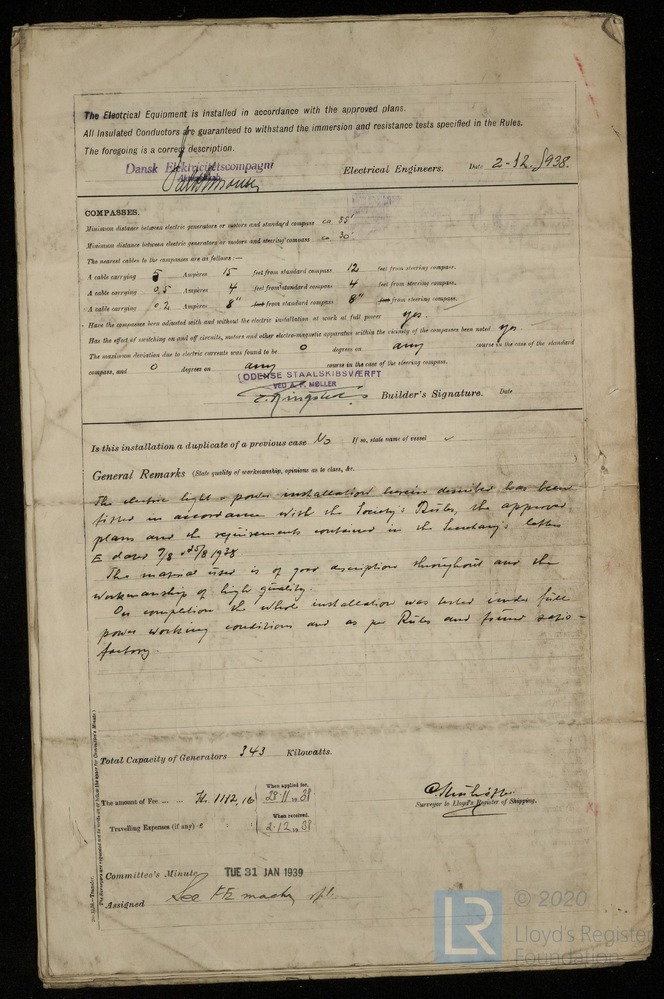 The Electrical Equipment is installed in accordance with the approved plans.
All Insulated Conductors are guaranteed to withstand the immersion and resistance tests specified in the Rules.
The foregoing is a correct description.
Dansk Elektricitetscompagni
Electrical Engineers. Date 2-12-1938.
COMPASSES.
Minimum distance between electric generators or motors and standard compass ca 35'
Minimum distance between electric generators or motors and steering compass ca 30'
The nearest cables to the compasses are as follows:—
A cable carrying 5 Ampères 15 feet from standard compass 12 feet from steering compass.
A cable carrying 0,5 Ampères 4 feet from standard compass 4 feet from steering compass.
A cable carrying 0,2 Ampères 8" feet from standard compass 8" feet from steering compass.
Have the compasses been adjusted with and without the electric installation at work at full power yes.
Has the effect of switching on and off circuits, motors and other electro-magnetic apparatus within the vicinity of the compasses been noted yes.
The maximum deviation due to electric currents was found to be 0 degrees on any course in the case of the standard
compass, and 0 degrees on any course in the case of the steering compass.
ODENSE STAALSKIBSVÆRFT
VED A. P. MØLLER
Builder's Signature. Date
Is this installation a duplicate of a previous case No If so, state name of vessel
General Remarks (State quality of workmanship, opinions as to class, &c.
The electric light & power installation herein described has been
fitted in accordance with the Society's Rules, the approved
plans and the requirements contained in the Secretary's letters
E dated 9/8 & 25/8 1938.
The material used is of good description throughout and the
workmanship of high quality.
On completion the whole installation was tested under full
power working conditions and as per Rules and found satis-
factory.
Total Capacity of Generators 343 Kilowatts.
The amount of Fee ... ... Kr. 1112,16
When applied for, 28.11.1938
Travelling Expenses (if any) £ : :
When received, 2.12.1938
Surveyor to Lloyd's Register of Shipping.
Committee's Minute TUE 31 JAN 1939
Assigned See F.E. machy rpt.
LR
© 2020
Lloyd's Register
Foundation